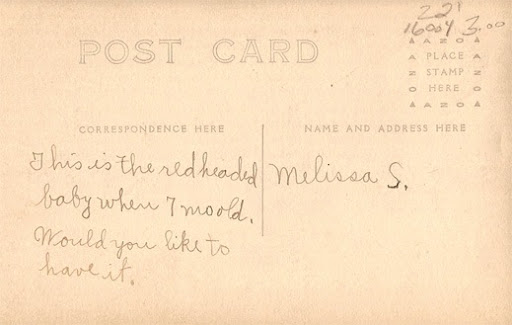 221
16004 3.00
POST CARD
AZOA
A PLACE A
N STAMP N
O HERE O
AZOA
CORRESPONDENCE HERE
NAME AND ADDRESS HERE
This is the redheaded
baby when 7 mo old.
Would you like to
have it.
Melissa S.